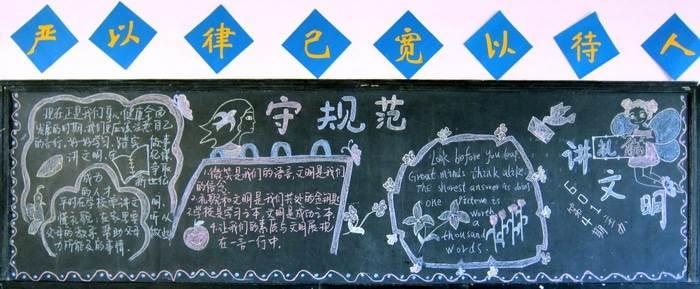 严以律己宽以待人
守规范
现在正是我们身心健康全面
发展的时期,我们应该注意自己
的言行,好好学习,踏实
讲文明
成功
的人才
平时在学校要讲文
懂礼貌,在家里要
父母的教导,帮助父母
力所能及的事情.
1.微笑是我们的语言,文明是我们
的信念.
2.礼貌和文明是我们共处的金钥匙
3.学校是学习之本,文明是成功之本.
4.让我们的素质与文明展现
在一言一行中.
Look before you leap
Great minds think alike
The shortest answer is doing
one Picture is
worth
a
thousand
words.
讲礼貌
文明
601主办
第4期